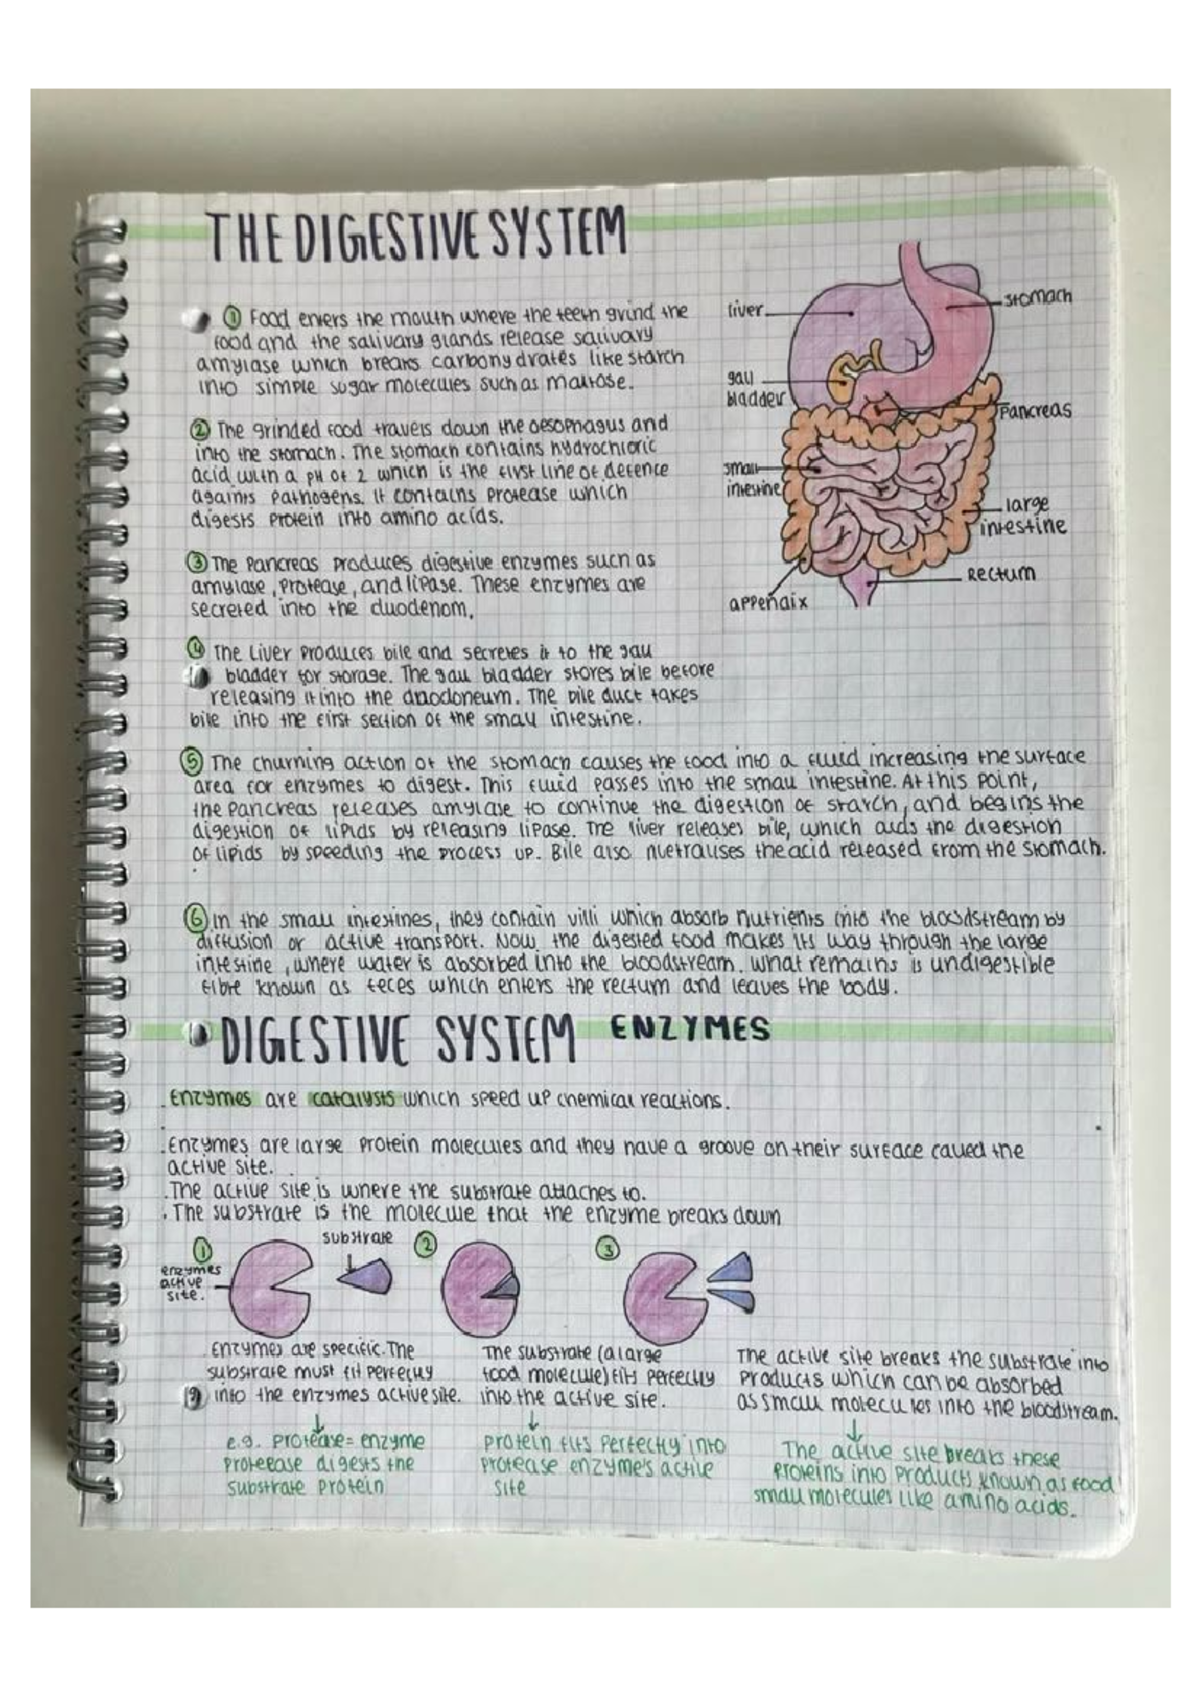 THE DIGESTIVE SYSTEM
① Food enters the mouth where the teeth grind the
food and the salivary glands release salivary
amylase which breaks carbohydrates like starch
into simple sugar molecules such as maltose.
② The grinded food travels down the oesophagus and
into the stomach. The stomach contains hydrochloric
acid with a pH of 2 which is the first line of defence
againts pathogens. It contains protease which
digests protein into amino acids.
③ The Pancreas produces digestive enzymes such as
amylase, protease, and lipase. These enzymes are
secreted into the duodenom.
④ The Liver produces bile and secretes it to the gall
bladder for storage. The gall bladder stores bile before
releasing it into the duodoneum. The bile duct takes
bile into the first section of the small intestine.
liver
stomach
gall
bladder
Pancreas
small
intestine
large
intestine
Rectum
appendix
⑤ The churning action of the stomach causes the food into a fluid increasing the surface
area for enzymes to digest. This fluid passes into the small intestine. At this point,
the pancreas releases amylase to continue the digestion of starch, and begins the
digestion of lipids by releasing lipase. The liver releases bile, which aids the digestion
of lipids by speeding the process up. Bile also nuetralises the acid released from the stomach.
⑥ In the small intestines, they contain villi which absorb nutrients into the bloodstream by
diffusion or active transport. Now the digested food makes its way through the large
intestine, where water is absorbed into the bloodstream. What remains is undigestible
fibre known as feces which enters the rectum and leaves the body.
DIGESTIVE SYSTEM ENZYMES
Enzymes are catalysts which speed up chemical reactions.
. Enzymes are large protein molecules and they have a groove on their surface called the
active site.
. The active site is where the substrate attaches to.
. The substrate is the molecule that the enzyme breaks down
①
substrate
②
③
enzymes
active
site.
Enzymes are specific. The
substrate must fit perfectly
into the enzymes active site.
e.g. protease = enzyme
protease digests the
substrate protein
The substrate (a large
food molecule) fits perfectly
into the active site.
protein fits perfectly into
protease enzyme's active
site
The active site breaks the substrate into
products which can be absorbed
as small molecules into the bloodstream.
The active site breaks these
proteins into products known as food
small molecules like amino acids.